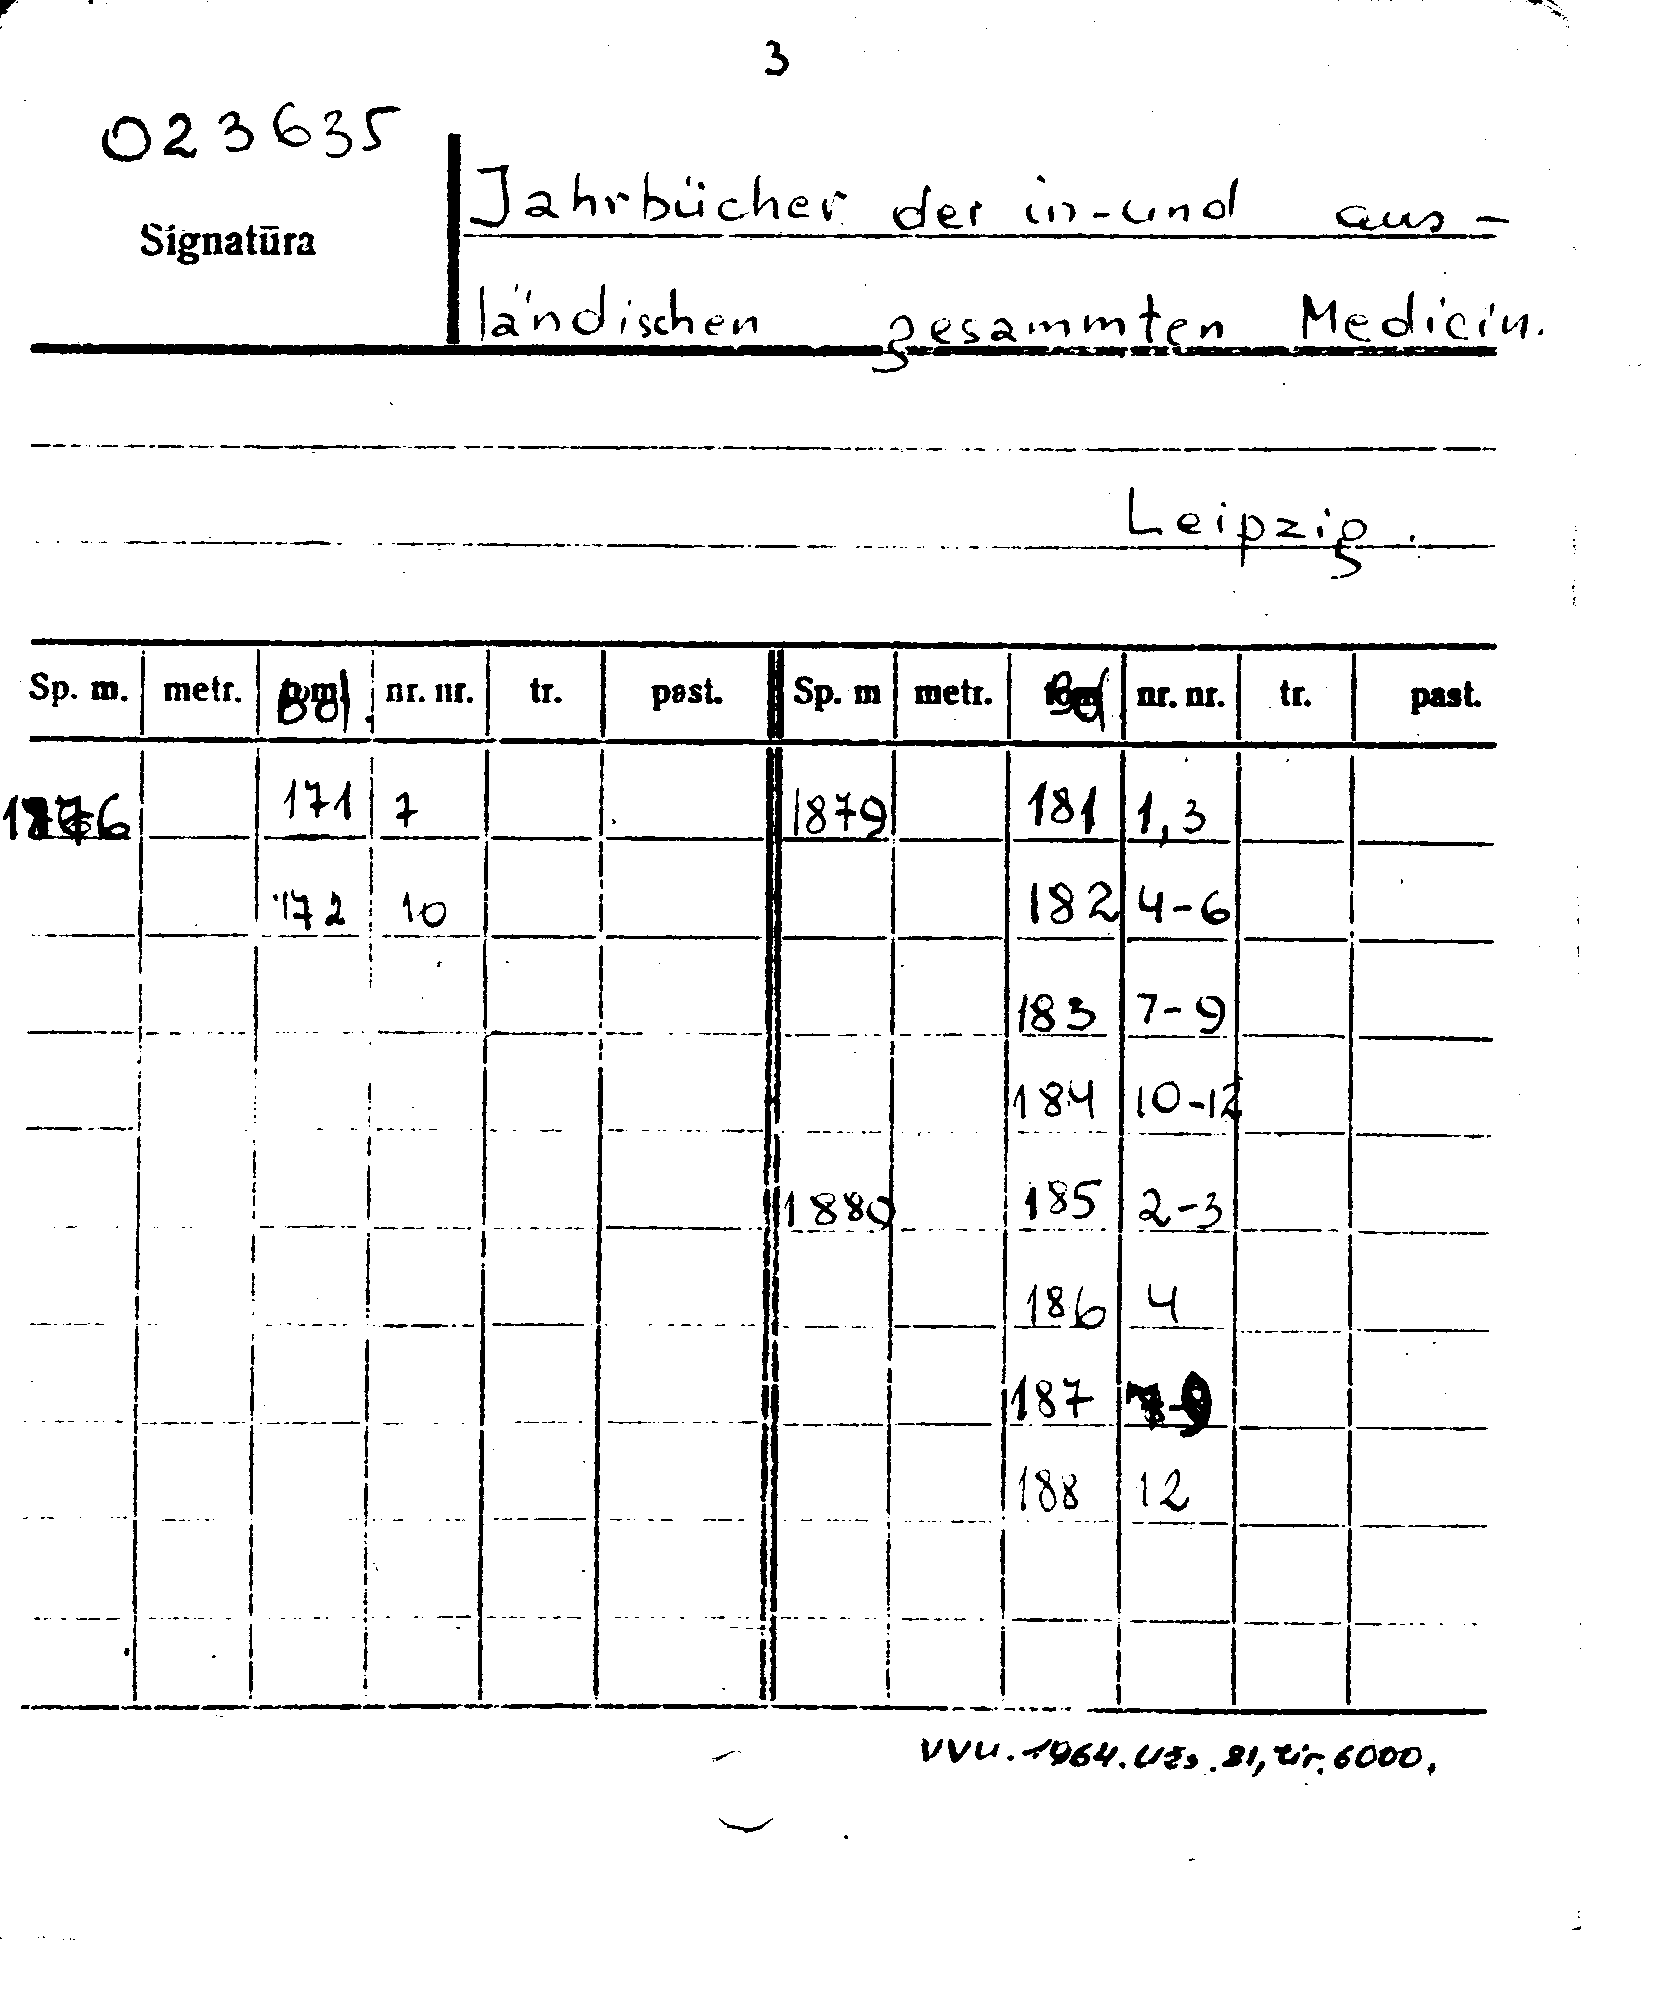 3
023635
Signatūra
Jahrbücher der in-und aus-
ländischen gesammten Medicin.
Leipzig.
Sp. m. metr. Bd. nr. nr. tr. past. Sp. m metr. Bd nr. nr. tr. past.
1876 171 7 1879 181 1,3
172 10 182 4-6
183 7-9
184 10-12
1880 185 2-3
186 4
187 7-9
188 12
VVU. 1964. Užs. 81, tir. 6000.